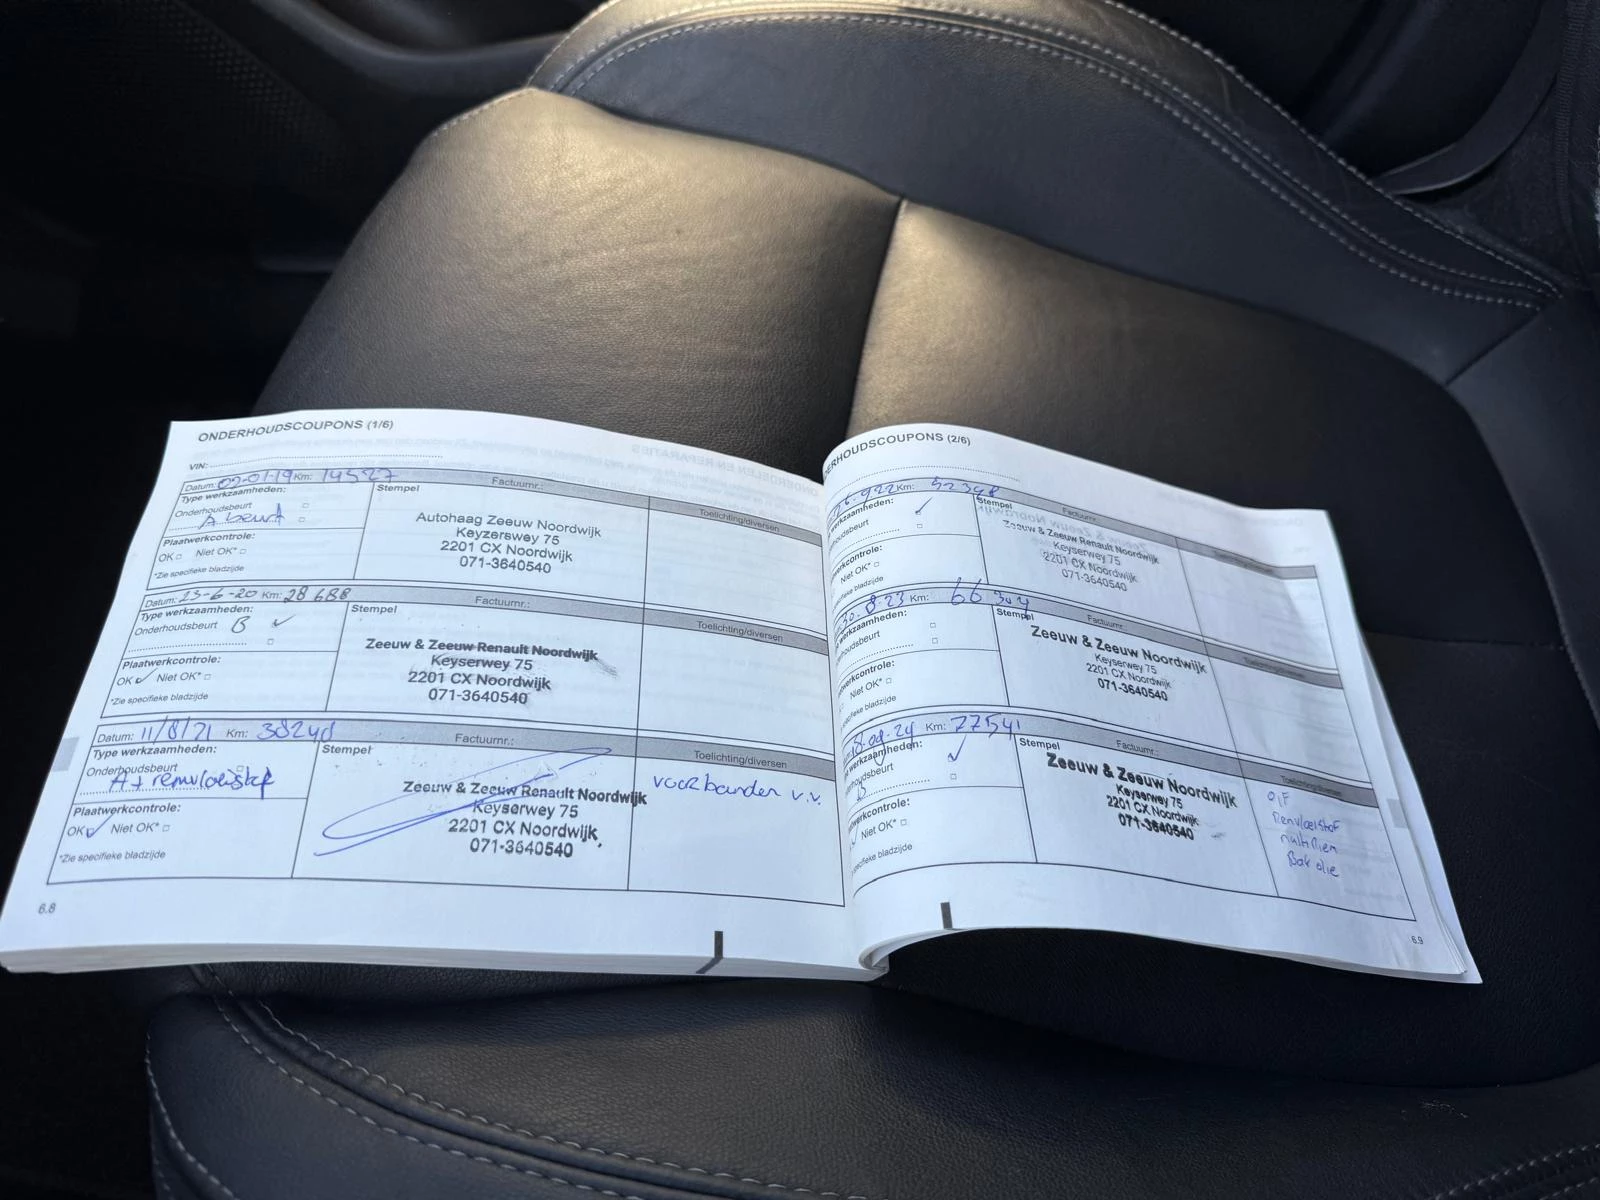 ONDERHOUDSCOUPONS (1/6)
VIN:
Datum: 09-01-19 Km: 14527
Type werkzaamheden:
Onderhoudsbeurt
A beurt
Plaatwerkcontrole:
OK Niet OK*
*Zie specifieke bladzijde
Stempel
Factuurnr.:
Autohaag Zeeuw Noordwijk
Keyzerswey 75
2201 CX Noordwijk
071-3640540
Toelichting/diversen
Datum: 23-6-20 Km: 28688
Type werkzaamheden:
Onderhoudsbeurt B ✓
Plaatwerkcontrole:
OK ✓ Niet OK*
*Zie specifieke bladzijde
Stempel
Factuurnr.:
Zeeuw & Zeeuw Renault Noordwijk
Keyserwey 75
2201 CX Noordwijk
071-3640540
Toelichting/diversen
Datum: 11/8/21 Km:
Type werkzaamheden:
Onderhoudsbeurt
A + remvloeistof
Plaatwerkcontrole:
OK ✓ Niet OK*
*Zie specifieke bladzijde
Stempel
Factuurnr.:
Zeeuw & Zeeuw Renault Noordwijk
Keyserwey 75
2201 CX Noordwijk
071-3640540
Toelichting/diversen
voorbanden v.v.
6.8
ERHOUDSCOUPONS (2/6)
Km: 52348
erkzaamheden:
✓
Stempel
Factuurnr.
Zeeuw & Zeeuw Renault Noordwijk
Keyserwey 75
2201 CX Noordwijk
071-3640540
werkcontrole:
Niet OK*
specifieke bladzijde
30-8-23 Km: 66304
werkzaamheden:
Stempel
Factuurnr.
Zeeuw & Zeeuw Noordwijk
Keyserwey 75
2201 CX Noordwijk
071-3640540
Toelichting/diversen
werkcontrole:
Niet OK*
specifieke bladzijde
Km: 77541
werkzaamheden:
✓
B
Stempel
Factuurnr.
Zeeuw & Zeeuw Noordwijk
Keyserwey 75
2201 CX Noordwijk
071-3640540
Toelichting/diversen
O,F
Remvloeistof
multiriem
Bak olie
werkcontrole:
Niet OK*
specifieke bladzijde
6.9